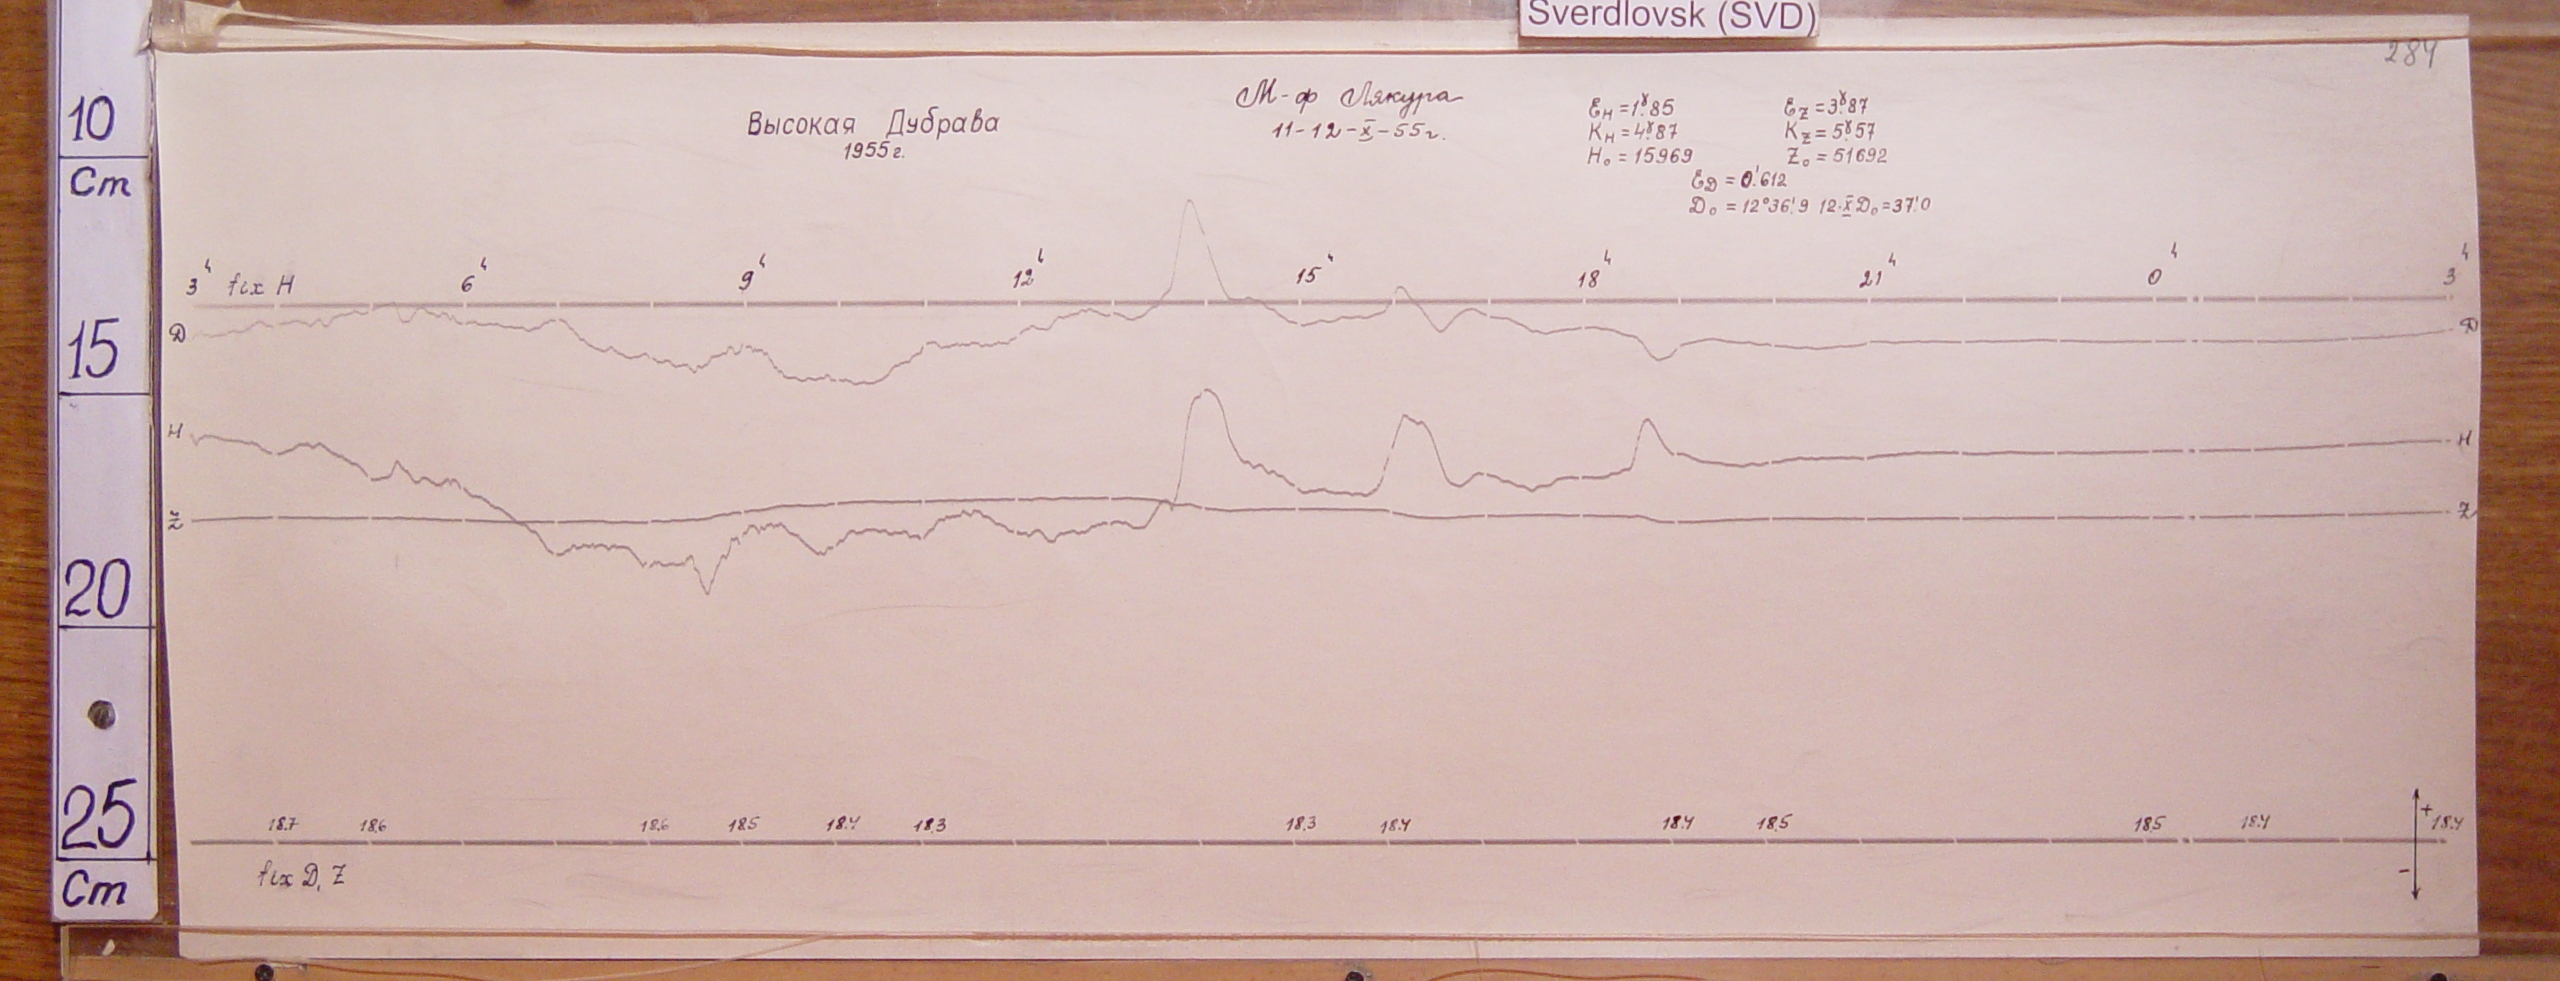 Sverdlovsk (SVD)
284
10
Cm
15
20
25
Cm
Высокая Дубрава
1955 г.
М-ф Лякура
11-12-X-55г.
EH = 1γ.85
KH = 4γ.87
H₀ = 15969
EZ = 3γ.87
KZ = 5γ.57
Z₀ = 51692
EД = 0'.612
Д₀ = 12°36'.9 12-X Д₀ = 37'.0
3ч fix H 6ч 9ч 12ч 15ч 18ч 21ч 0ч 3ч
Д Д
H H
Z Z
18.7 18.6 18.6 18.5 18.4 18.3 18.3 18.4 18.4 18.5 18.5 18.4 + 18.4
fix Д, Z -